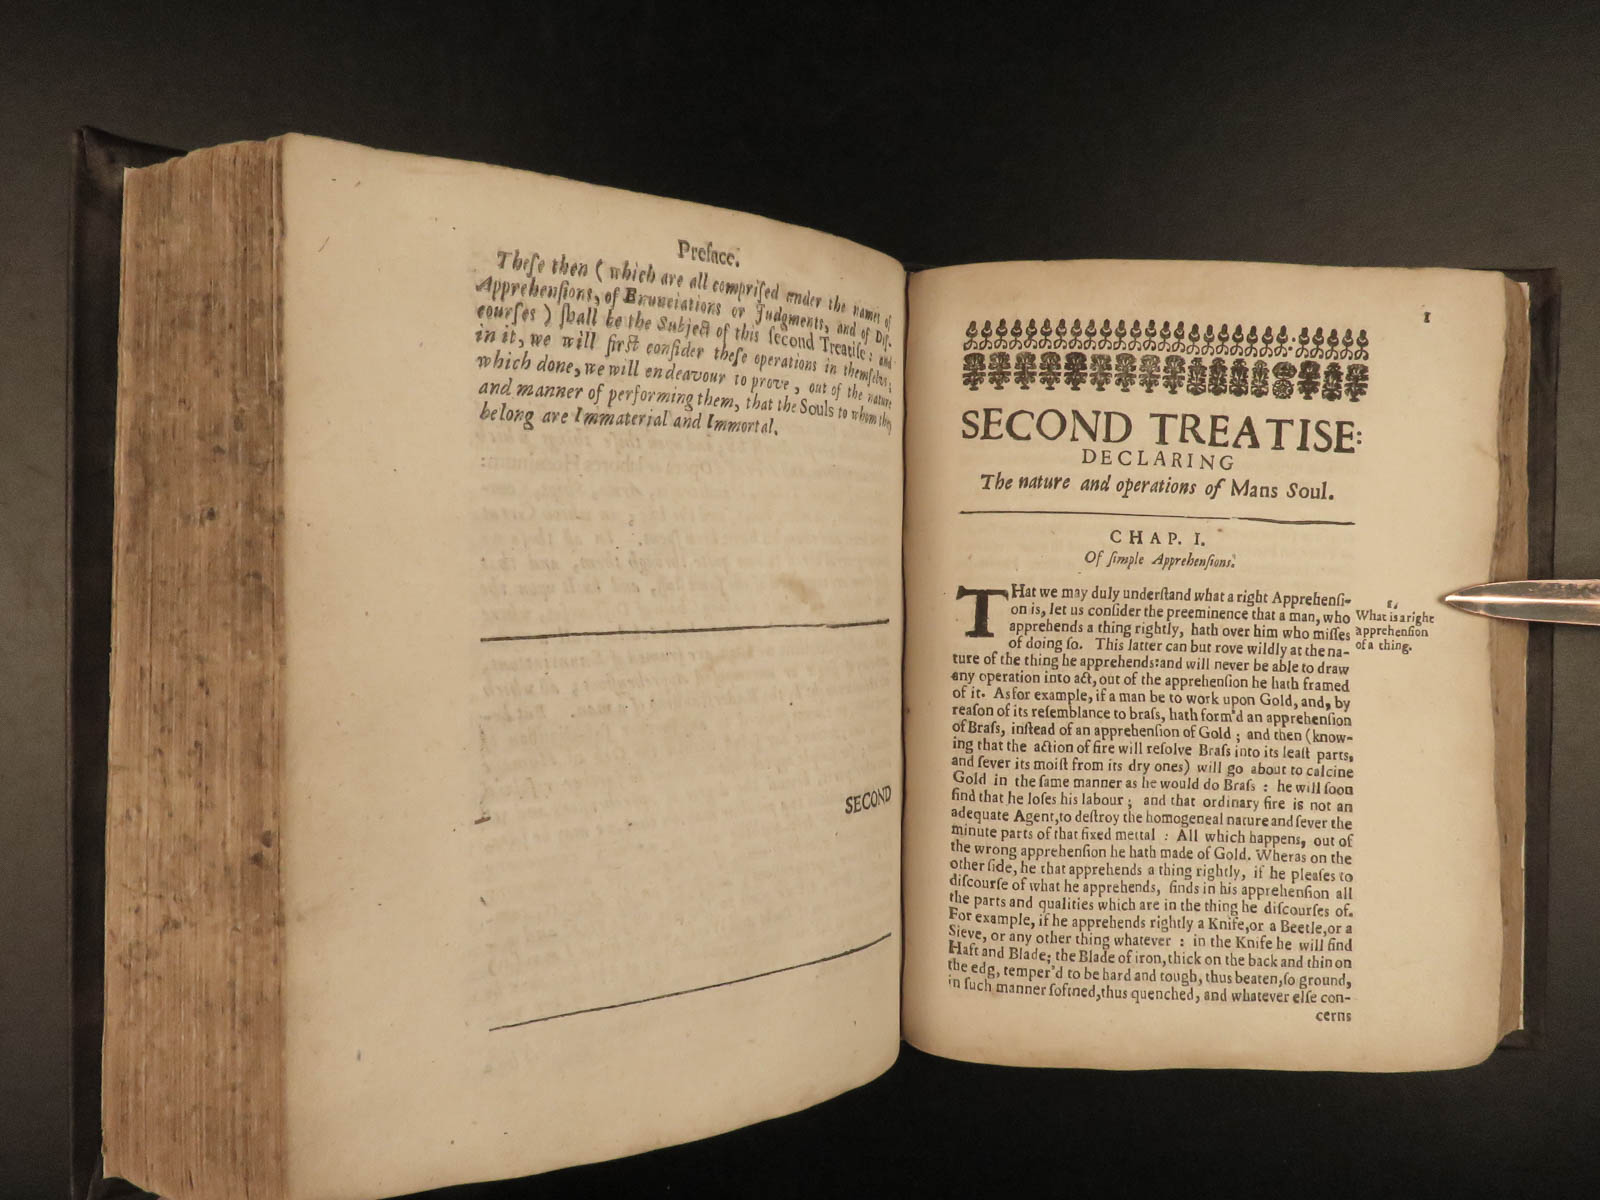 Preface.
Theſe then ( which are all compriſed under the names of
Apprehenſions, of Enunciations or Judgments, and of Diſ-
courſes ) ſhall be the Subject of this ſecond Treatiſe: and
in it, we will firſt conſider theſe operations in themſelves;
which done, we will endeavour to prove, out of the nature
and manner of performing them, that the Souls to whom they
belong are Immaterial and Immortal.
SECOND
1
SECOND TREATISE:
DECLARING
The nature and operations of Mans Soul.
CHAP. I.
Of ſimple Apprehenſions.
THat we may duly underſtand what a right Apprehenſi-
on is, let us conſider the preeminence that a man, who
apprehends a thing rightly, hath over him who miſſes
of doing ſo. This latter can but rove wildly at the na-
ture of the thing he apprehends: and will never be able to draw
any operation into act, out of the apprehenſion he hath framed
of it. As for example, if a man be to work upon Gold, and, by
reaſon of its reſemblance to braſs, hath form'd an apprehenſion
of Braſs, inſtead of an apprehenſion of Gold ; and then (know-
ing that the action of fire will reſolve Braſs into its leaſt parts,
and ſever its moiſt from its dry ones) will go about to calcine
Gold in the ſame manner as he would do Braſs : he will ſoon
find that he loſes his labour ; and that ordinary fire is not an
adequate Agent, to deſtroy the homogeneal nature and ſever the
minute parts of that fixed mettal : All which happens, out of
the wrong apprehenſion he hath made of Gold. Wheras on the
other ſide, he that apprehends a thing rightly, if he pleaſes to
diſcourſe of what he apprehends, finds in his apprehenſion all
the parts and qualities which are in the thing he diſcourſes of.
For example, if he apprehends rightly a Knife, or a Beetle, or a
Sieve, or any other thing whatever : in the Knife he will find
Haft and Blade; the Blade of iron, thick on the back and thin on
the edg, temper'd to be hard and tough, thus beaten, ſo ground,
in ſuch manner ſoftned, thus quenched, and whatever elſe con-
cerns
1.
What is a right
apprehenſion
of a thing.